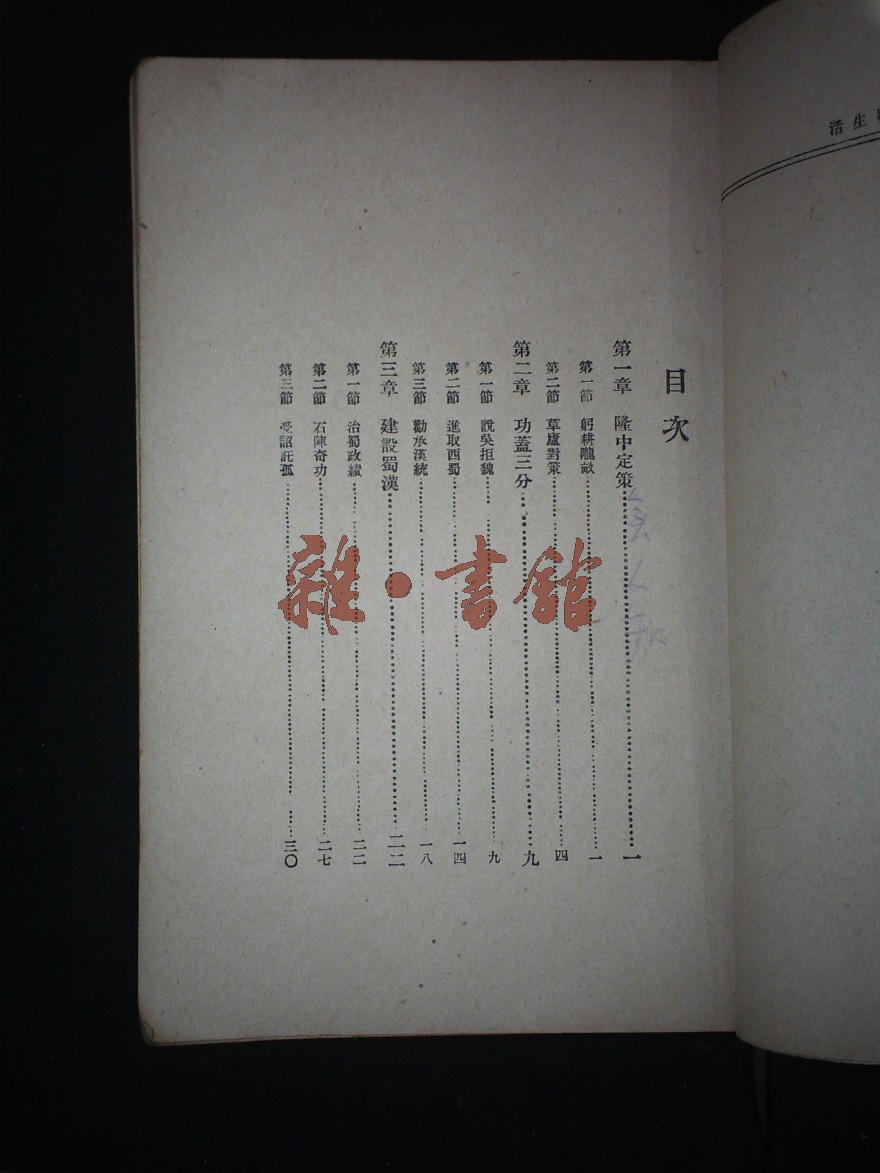 目次
第一章 隆中定策……一
第一節 躬耕隴畝……一
第二節 草廬對策……四
第二章 功蓋三分……九
第一節 說吳拒魏……九
第二節 進取西蜀……一四
第三節 勸承漢統……一八
第三章 建設蜀漢……二二
第一節 治蜀政績……二二
第二節 石陣奇功……二七
第三節 受詔託孤……三〇
雜·書館
活生